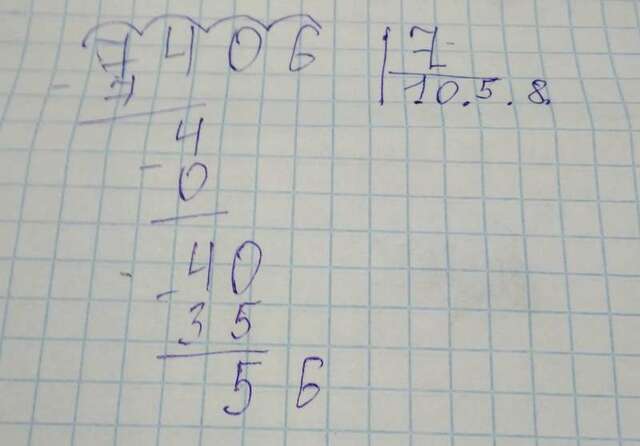 7406 7
- 7 10.5.8.
4
- 0
40
- 35
56